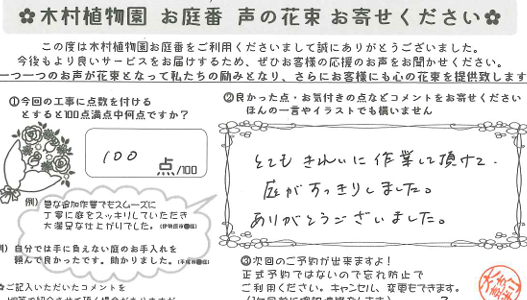 ✿木村植物園 お庭番 声の花束 お寄せください✿
この度は木村植物園お庭番をご利用くださいまして誠にありがとうございました。
今後もより良いサービスをお届けするため、ぜひお客様の応援のお声をお聞かせください。
一つ一つのお声が花束となって私たちの励みとなり、さらにお客様にも心の花束を提供致します
①今回の工事に点数を付ける
とすると100点満点中何点ですか？
100 点/100
例）急な追加作業でもスムーズに
丁寧に庭をスッキリしていただき
大満足な仕上がりでした。
例）自分では手に負えない庭のお手入れを
頼んで良かったです。助かりました。
✿ご記入いただいたコメントを
②良かった点・お気付きの点などコメントをお寄せください
ほんの一言やイラストでも構いません
とてもきれいに作業して頂けて、
庭がすっきりしました。
ありがとうございました。
③次回のご予約が出来ますよ！
正式予約ではないので忘れ防止で
ご利用ください。キャンセル、変更もできます。